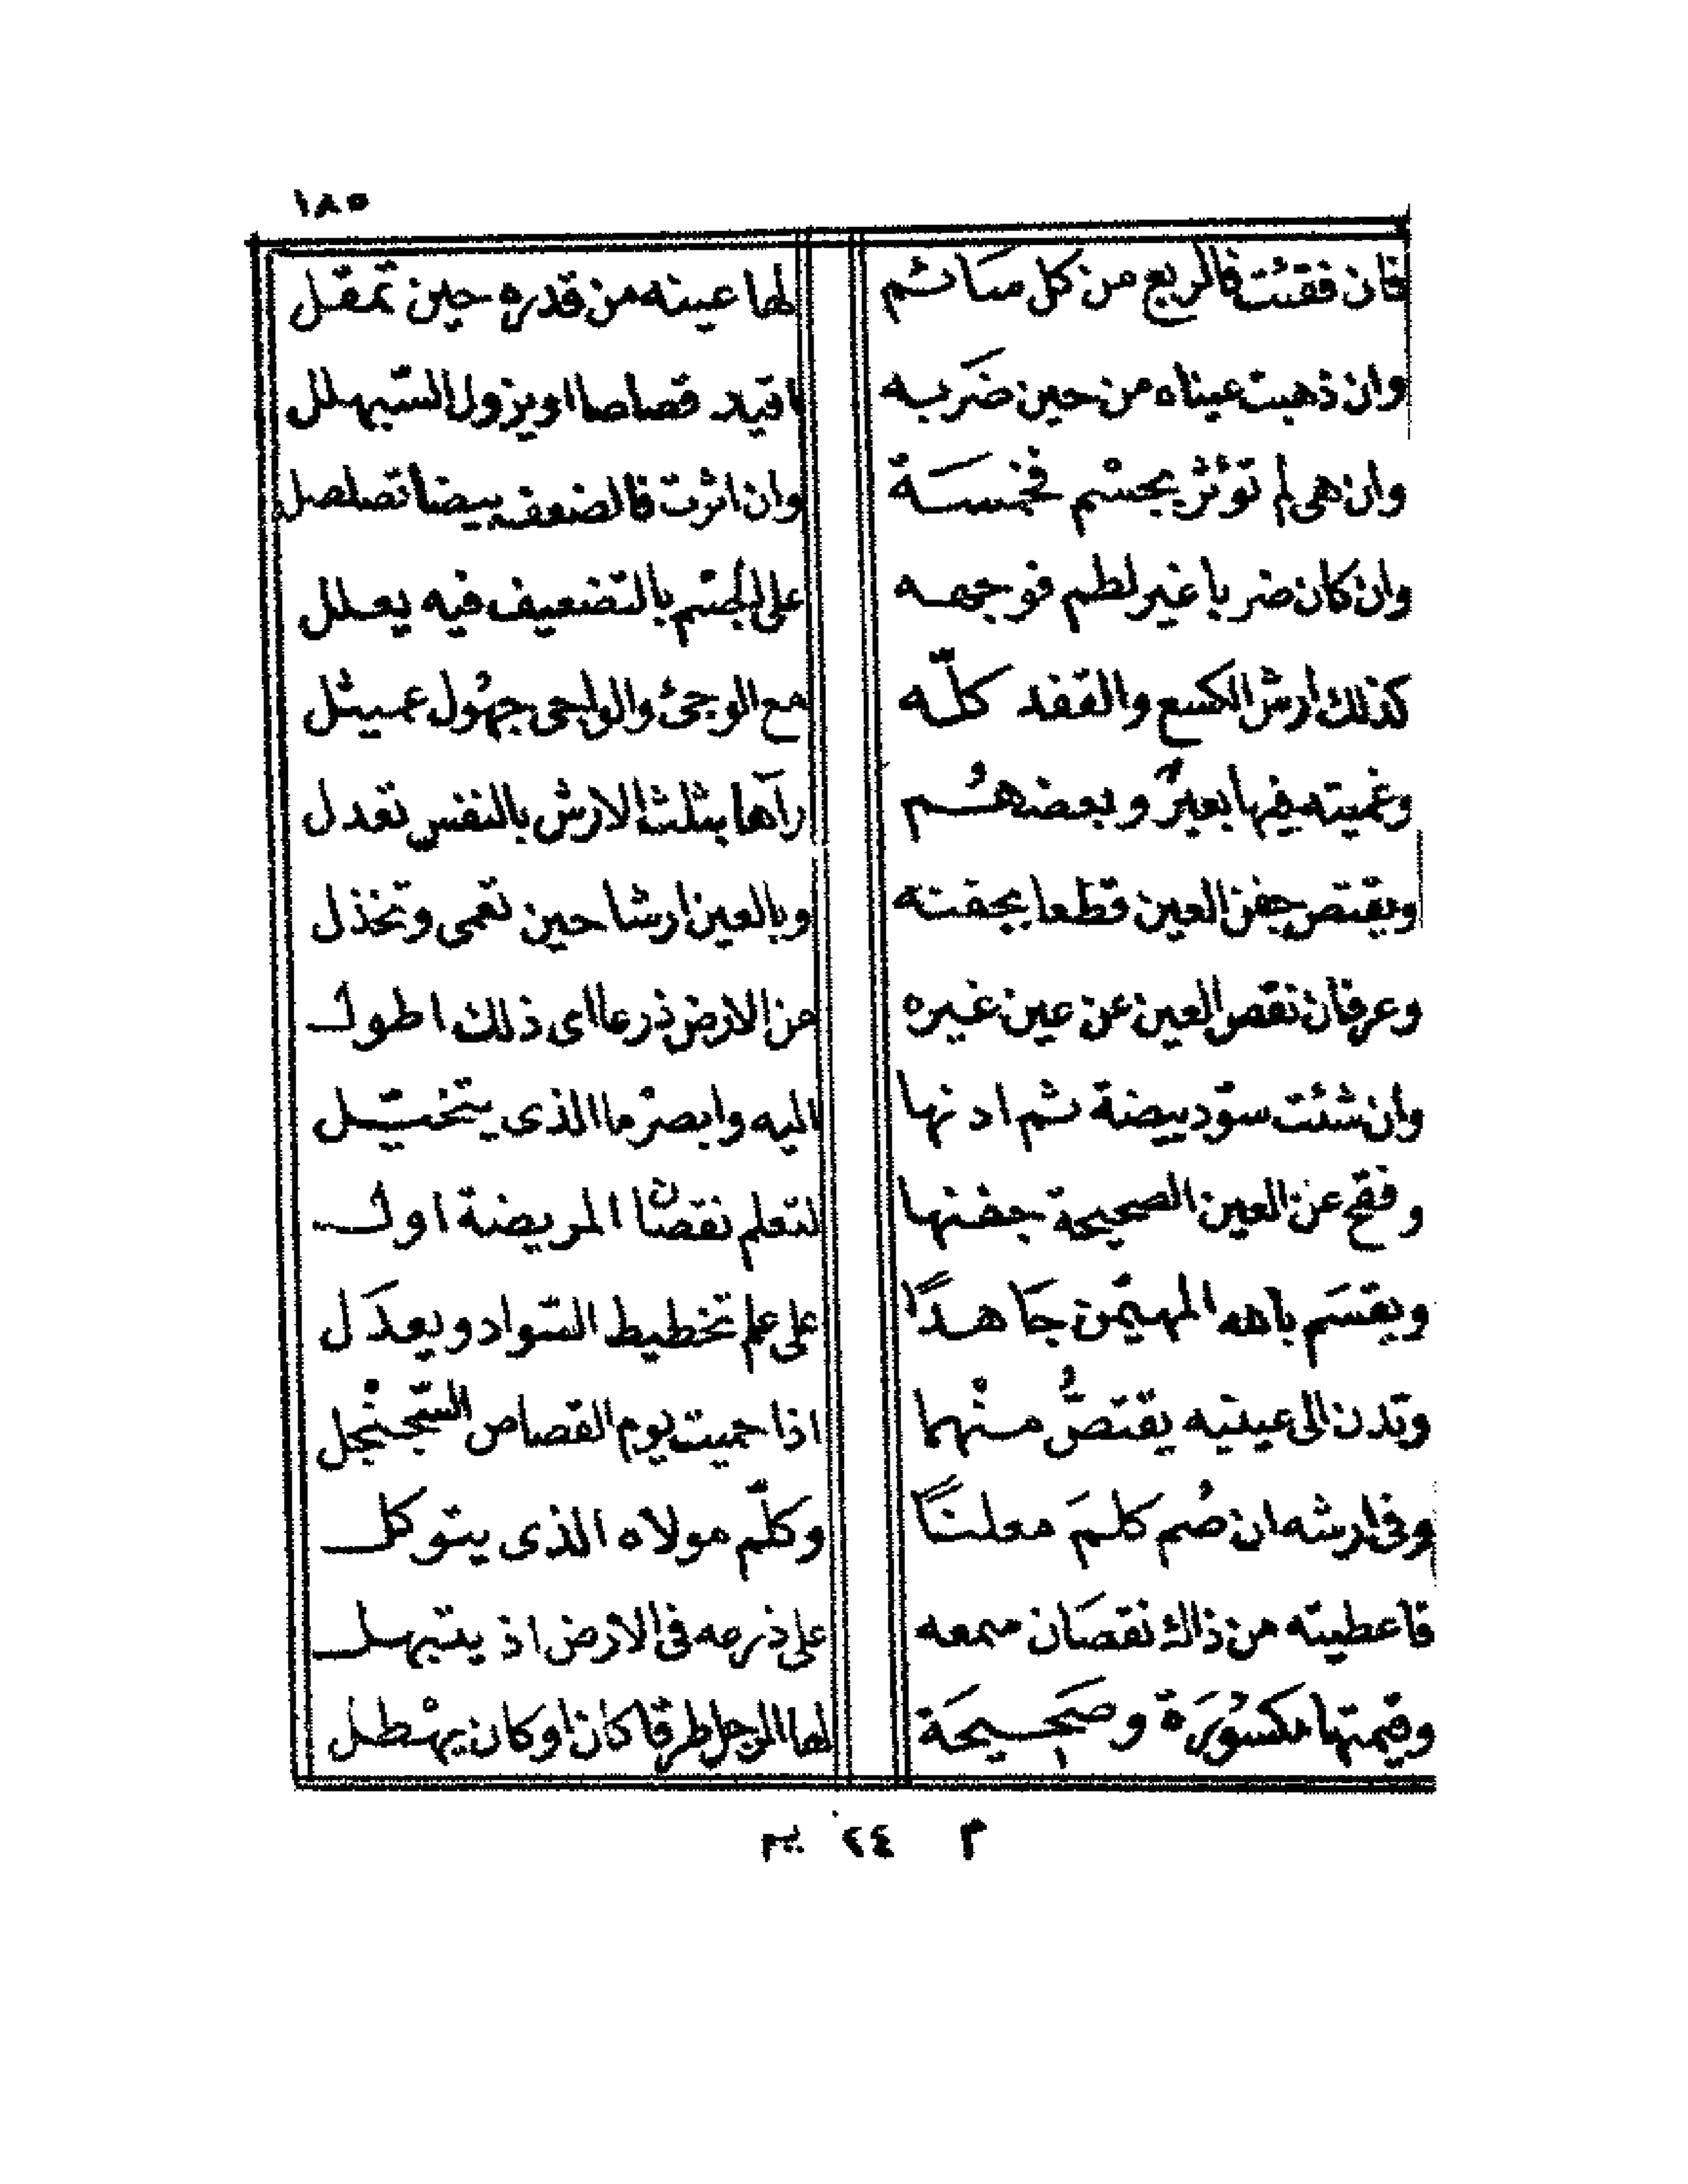 ١٨٥
فان فقئت فالربع من كل سائم لها عينه من قدره حين تمقل
وان ذهبت عيناه من حين ضَربه اقيد قصاصا او يزول السّبهلل
وان هى لم تؤثر بجسْم فخمسَة وان اثرت فالضعف بيضا تصلصل
وان كان ضربا غير لطم فوجهه على الجسْم بالتضعيف فيه يعلل
كذلك ارش الكسع والقفد كلّه مع الوجئ والواجى جهُول عميثل
وغميته فيها بعيرٌ وبعضهُم رآها بثلث الارش بالنفس تعدل
ويقتص جفن العين قطعا بجفنه وبالعين ارشا حين تعمى وتخذل
وعرفان نقص العين عن عين غيره من الارض ذرعا اى ذلك اطول
وان شئت سوّد بيضة ثم ادنها اليه وابصرْ ما الذى يتخيّل
وفتح عن العين الصحيحة جفنها لتعلم نقصان المريضة اول
ويقسَم بالله المهيمن جَاهدًا على علم تخطيط السّواد ويعدَل
وتدن الى عينيه يقتصُّ منْهما اذا حميت يوم القصاص السّجنْجل
وفى ارشه ان صُم كلمَ معلنًا وكلّم مولاه الذى يتوكل
فاعطيته من ذاك نقصَان سمعه على ذرعه فى الارض اذ يتبهل
وقيمتها مكسُورَة وصَحِيحَة لها الرجل طرقا كان او كان يهْطل
م ٢٤